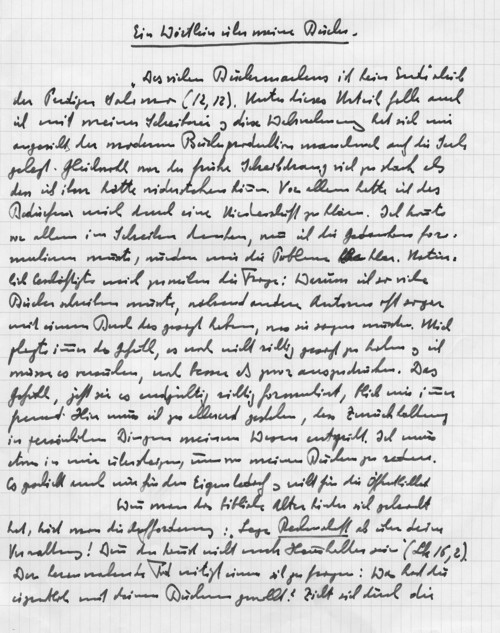 Ein Wörtlein über meine Bücher.
„Des vielen Büchermachens ist kein Ende" schrieb
der Prediger Salomo (12,12). Unter dieses Urteil falle auch
ich mit meiner Schreiberei, diese Wahrnehmung hat sich mir
angesichts der modernen Buchproduktion manchmal auf die Seele
gelegt. Gleichwohl war der frühe Schreibdrang viel zu stark als
dass ich ihm hätte widerstehen können. Vor allem hatte ich das
Bedürfnis mich durch eine Niederschrift zu klären. Ich konnte
vor allem im Schreiben denken, wenn ich die Gedanken for-
mulieren musste, wurden mir die Probleme klar. Natür-
lich beschäftigte mich zuweilen die Frage: Warum ich so viele
Bücher schreiben musste, während andere Autoren oft sogar
mit einem Buch das gesagt haben, was sie sagen mussten. Mich
plagte immer das Gefühl, es noch nicht richtig gesagt zu haben, ich
müsse es versuchen, noch besser als zuvor auszudrücken. Das
Gefühl, jetzt sei es endgültig richtig formuliert, blieb mir immer
fremd. Hier muss ich zu allererst gestehen, dass Zurückhaltung
in persönlichen Dingen meinem Wesen entspricht. Ich muss
etwas in mir übersteigen, um von meinen Büchern zu reden.
Es geschieht auch nur für den Eigenbedarf, nicht für die Öffentlichkeit
Wenn man das biblische Alter hinter sich gebracht
hat, hört man die Aufforderung: „Lege Rechenschaft ab über deine
Verwaltung! Denn du kannst nicht mehr Haushalter sein" (Lk 16,2).
Der herannahende Tod nötigt einen sich zu fragen: Was hast du
eigentlich mit deinen Büchern gewollt? Zieht sich durch die